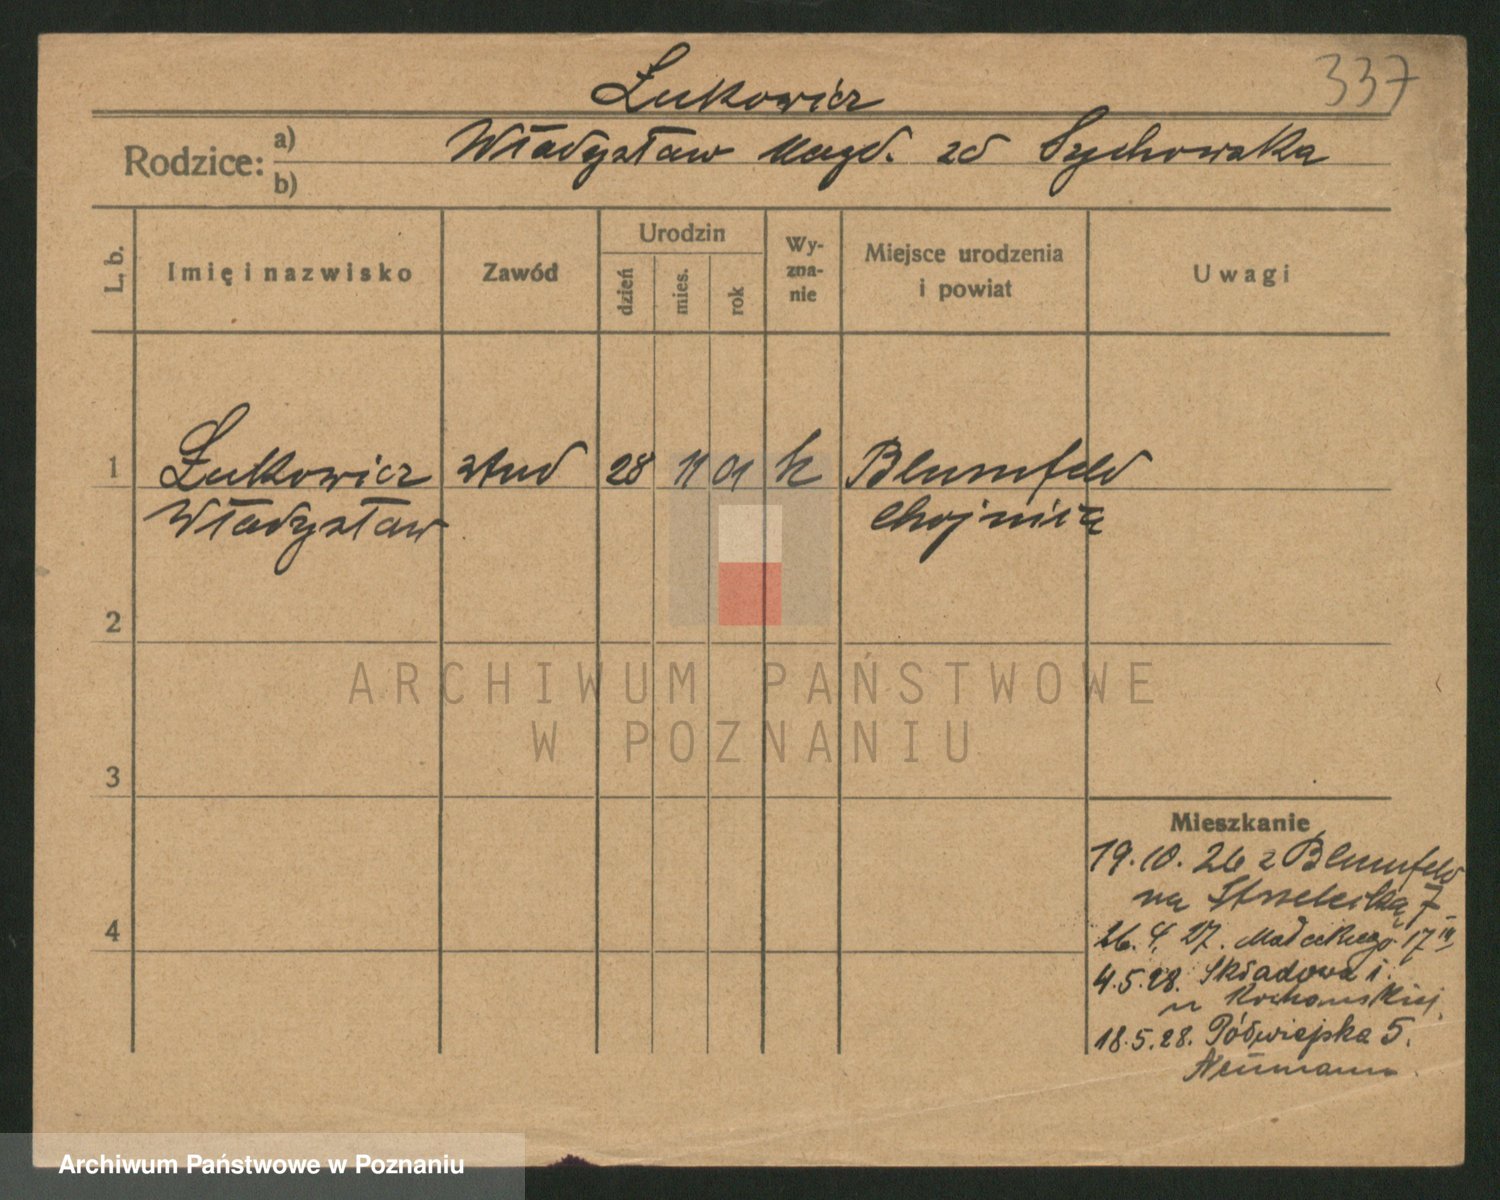 337
Łukowicz
Rodzice: a) Władysław Magd. zd Sychowska
b)
L. b. Imię i nazwisko Zawód Urodzin dzień mies. rok Wyznanie Miejsce urodzenia i powiat Uwagi
1 Łukowicz stud 28 11 01 k Blumfeld
Władysław Chojnice
2
ARCHIWUM PAŃSTWOWE
W POZNANIU
3
Mieszkanie
19.10.26 z Blumfeld
na Strzelecką 7
4
26.4.27. Małeckiego 17 III
4.5.28. Składowa 1.
u Kochańskiej
18.5.28. Półwiejska 5.
Neumann.
Archiwum Państwowe w Poznaniu